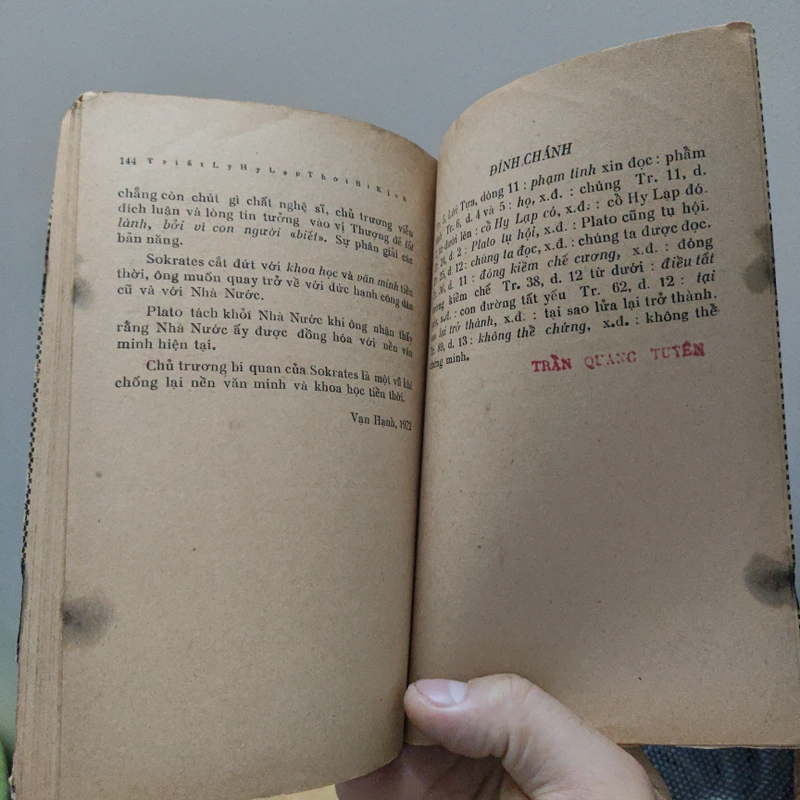 144 Triết Lý Hy Lạp Thời Bi Kịch
chẳng còn chút gì chất nghệ sĩ, chủ trương viễn
đích luận và lòng tin tưởng vào vị Thượng đế tốt
lành, bởi vì con người «biết». Sự phân giải các
bản năng.
Sokrates cắt đứt với khoa học và văn minh tiền
thời, ông muốn quay trở về với đức hạnh công dân
cũ và với Nhà Nước.
Plato tách khỏi Nhà Nước khi ông nhận thấy
rằng Nhà Nước ấy được đồng hóa với nền văn
minh hiện tại.
Chủ trương bi quan của Sokrates là một vũ khí
chống lại nền văn minh và khoa học tiền thời.
Vạn Hạnh, 1972
ĐÍNH CHÁNH
5, Lời Tựa, dòng 11 : phạm tinh xin đọc : phẩm
Tr. 6, d. 4 và 5 : họ, x.đ. : chủng Tr. 11, d.
dưới lên : cồ Hy Lạp có, x.đ. : cồ Hy Lạp đó.
24, d. 2 : Plato tụ hội, x.đ. : Plato cũng tụ hội.
25, d. 12 : chúng ta đọc, x.đ. : chúng ta được đọc.
36, d. 11 : đóng kiềm chế cương, x.đ. : đóng
kiềm chế Tr. 38, d. 12 từ dưới : điều tất
x.đ. : con đường tất yếu Tr. 62, d. 12 : tại
lại trở thành, x.đ. : tại sao lửa lại trở thành.
Tr. 89, d. 13 : không thể chứng, x.đ. : không thể
chứng minh.
TRẦN QUANG TUYẾN